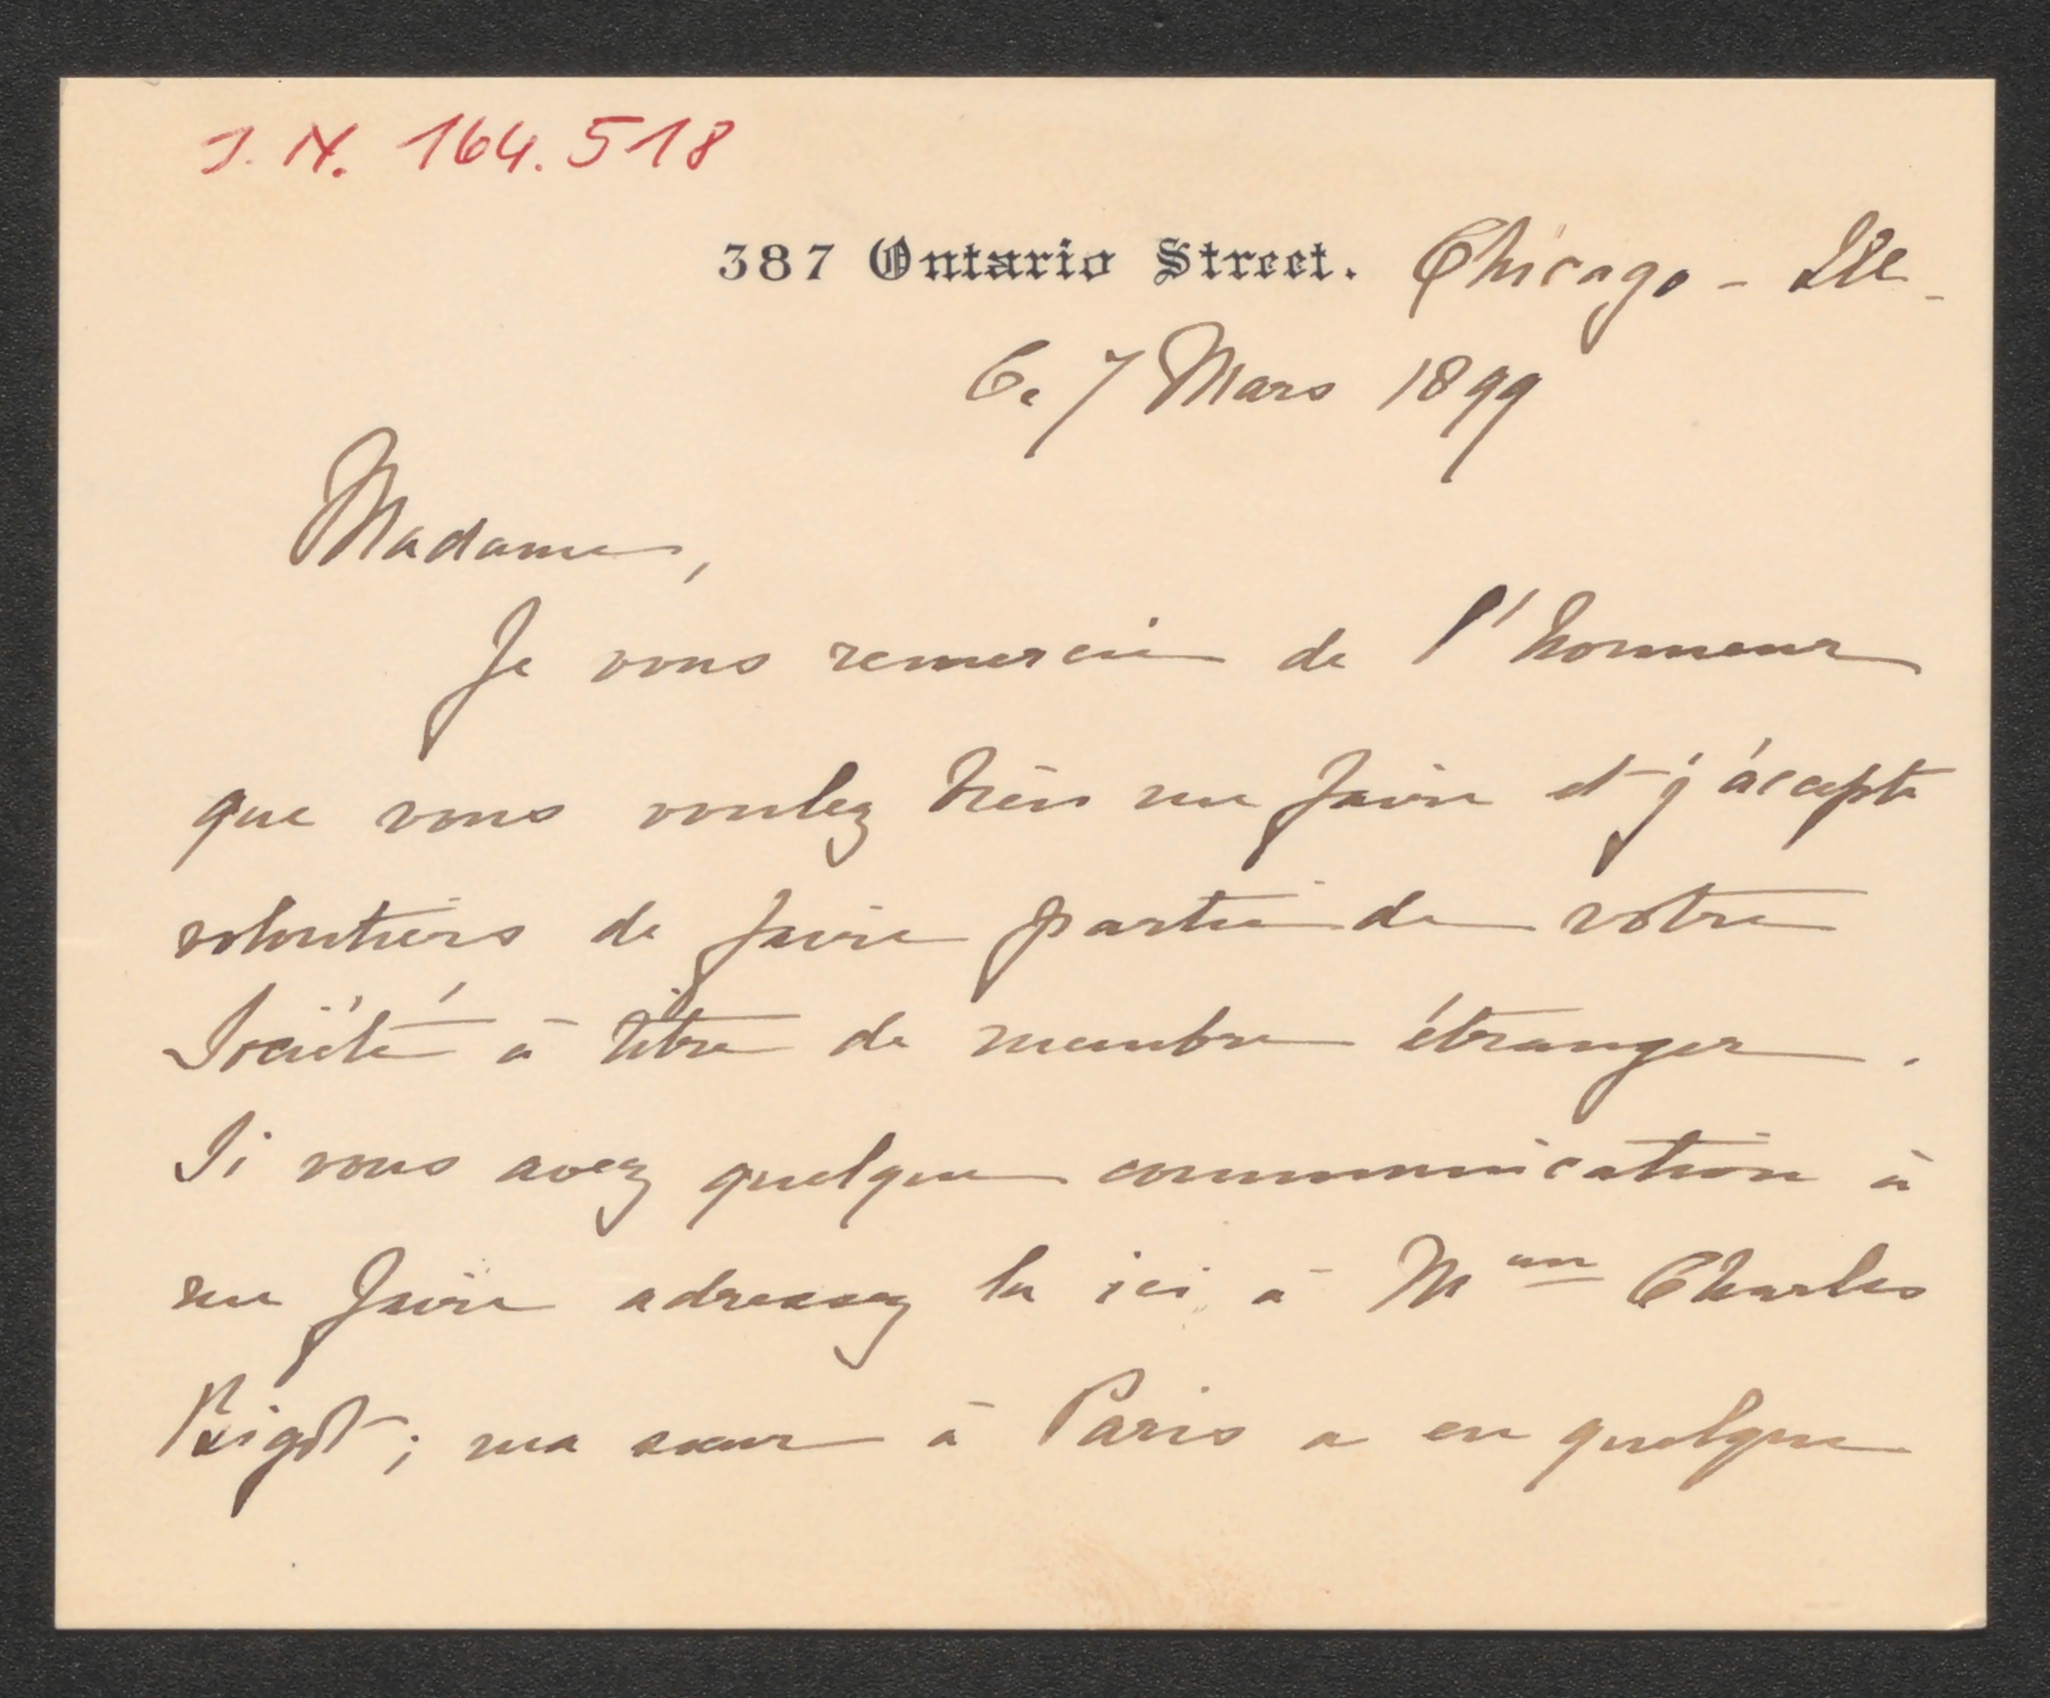 J. N. 164.518
387 Ontario Street. Chicago - Ill -
Ce 7 Mars 1899
Madame,
Je vous remercie de l'honneur
que vous voulez bien me faire et j'accepte
volontiers de faire partie de votre
Société à titre de membre étranger.
Si vous avez quelque communication à
me faire adressez la ici à Mme Charles
Bigot ; ma sœur à Paris a eu quelque